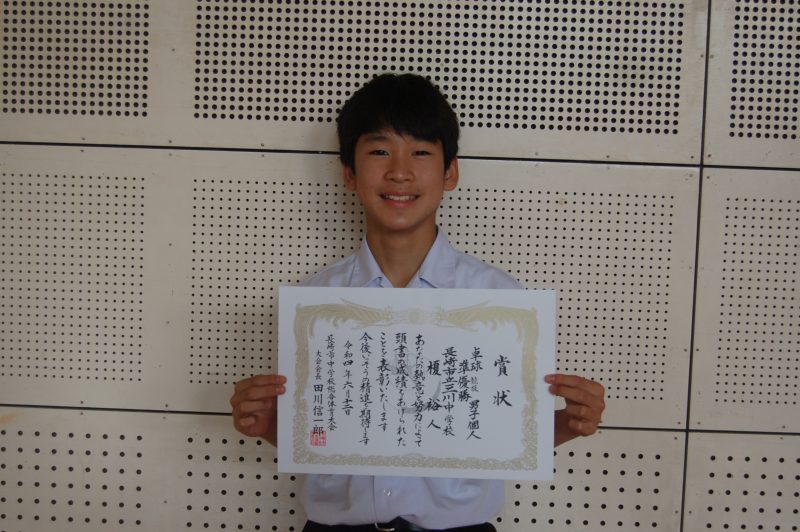 賞状
卓球 競技 男子個人
準優勝
長崎市立三川中学校
榎 裕人
あなたの熱意と努力によって
頭書の成績をあげられた
ことを表彰いたします
今後いっそうの精進を期待します
令和四年六月十二日
長崎市中学校総合体育大会
大会会長 田川信一郎